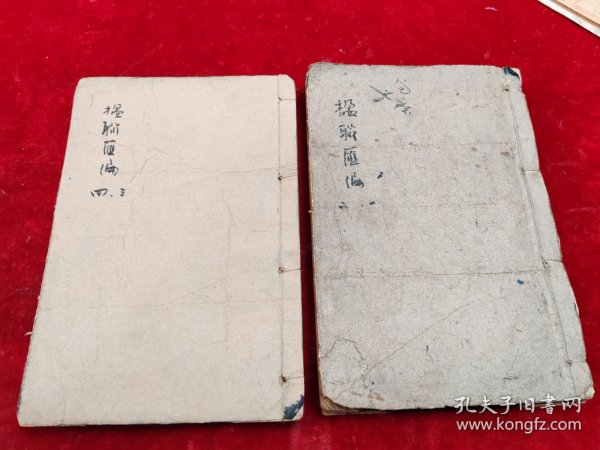 楹聯匯编
四.三
楹聯匯编
二.一
孔夫子旧书网
www.kongfz.com